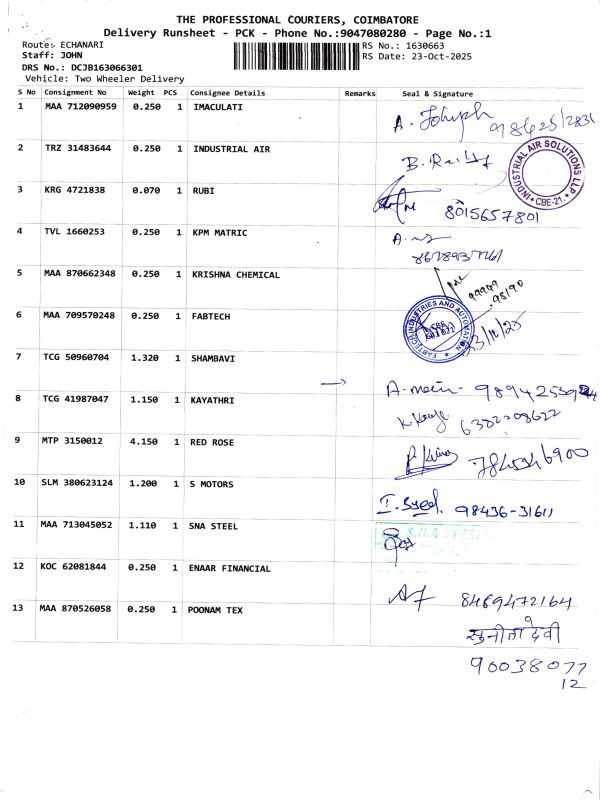 THE PROFESSIONAL COURIERS, COIMBATORE
Delivery Runsheet - PCK - Phone No.:9047080280 - Page No.:1
Route: ECHANARI
RS No.: 1630663
Staff: JOHN
RS Date: 23-Oct-2025
DRS No.: DCJB163066301
Vehicle: Two Wheeler Delivery
S No Consignment No Weight PCS Consignee Details Remarks Seal & Signature
1 MAA 712090959 0.250 1 IMACULATI
A. Joseph
2 TRZ 31483644 0.250 1 INDUSTRIAL AIR
INDUSTRIAL AIR SOLUTIONS LLP * CBE-21. *
3 KRG 4721838 0.070 1 RUBI
8015657801
4 TVL 1660253 0.250 1 KPM MATRIC
5 MAA 870662348 0.250 1 KRISHNA CHEMICAL
99949
95190
6 MAA 709570248 0.250 1 FABTECH
FABTECH INDUSTRIES AND AUTOMATION
23/10/25
7 TCG 50960704 1.320 1 SHAMBAVI
8 TCG 41987047 1.150 1 KAYATHRI
6382208622
9 MTP 3150012 4.150 1 RED ROSE
10 SLM 380623124 1.200 1 S MOTORS
I. Syed. 98436-31611
11 MAA 713045052 1.110 1 SNA STEEL
S.N.A STEEL
12 KOC 62081844 0.250 1 ENAAR FINANCIAL
8469472164
13 MAA 870526058 0.250 1 POONAM TEX
सुनीता देवी
90038077
12